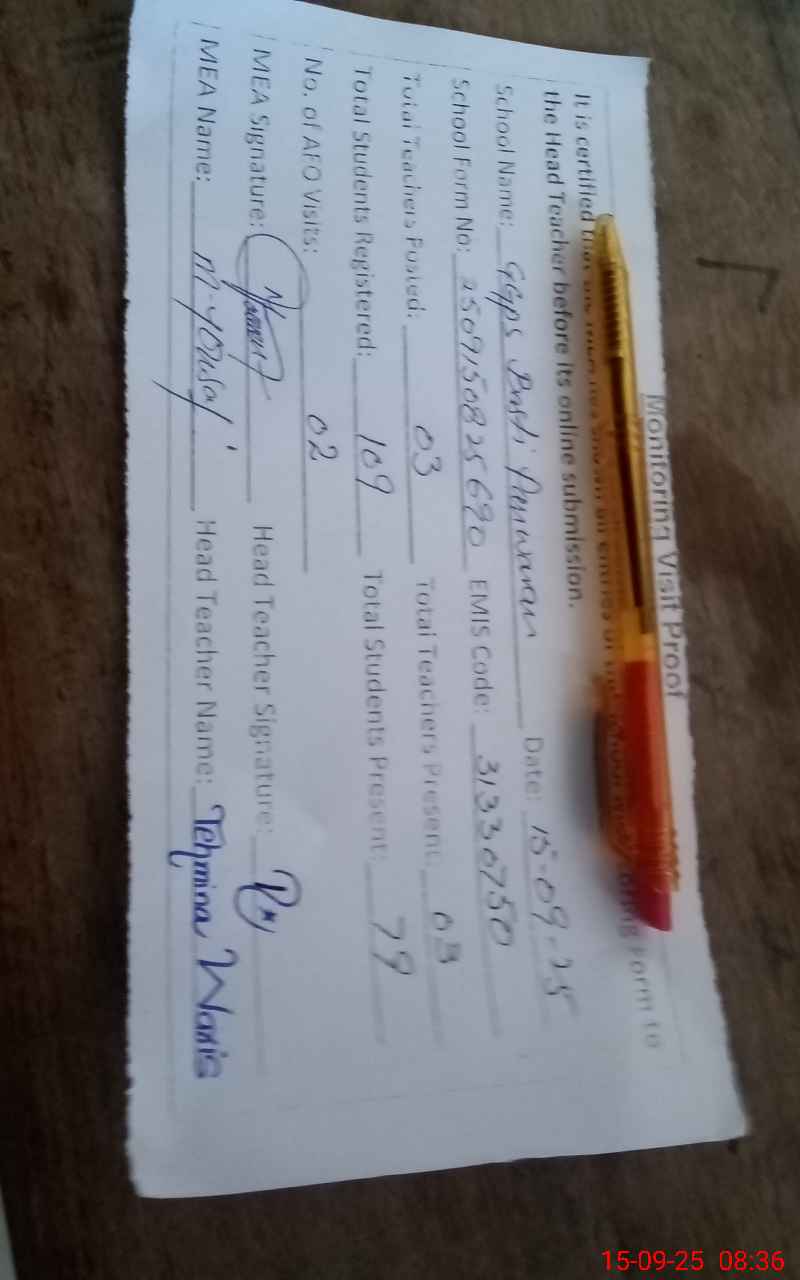 Monitoring Visit Proof
It is certified Form to
the Head Teacher before its online submission.
School Name: GGPS Basti Date: 15-09-25
School Form No: 2509150825690 EMIS Code: 31330750
Total Teachers Posted: 03 Total Teachers Present: 03
Total Students Registered: 109 Total Students Present: 79
No. of AEO Visits: 02
MEA Signature: Head Teacher Signature:
MEA Name: M-Yousaf Head Teacher Name: Tehmina Waris
15-09-25 08:36